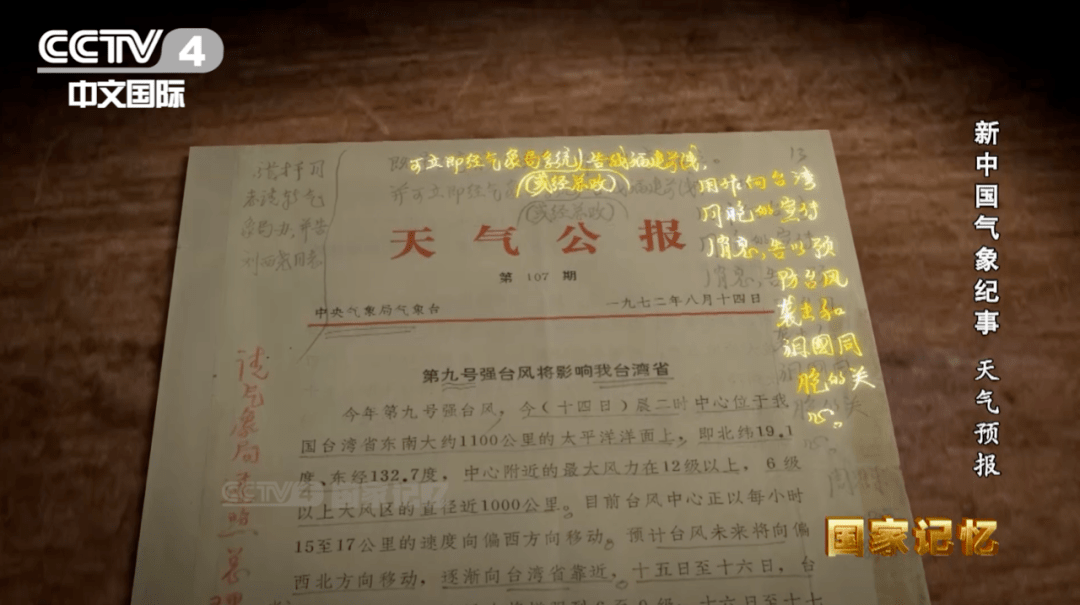 CCTV 4
中文国际
新中国气象纪事 天气预报
可立即经气象局系统告我福建前线
(或经总政)
用听向台湾
同胞的宣传
消息,告以预
防台风
袭击和
祖国同
胞的关
心。
天气公报
第 107 期
中央气象局气象台
一九七二年八月十四日
第九号强台风将影响我台湾省
今年第九号强台风,今(十四日)晨二时中心位于我
国台湾省东南大约1100公里的太平洋洋面上,即北纬19.1
度、东经132.7度,中心附近的最大风力在12级以上,6级
以上大风区的直径近1000公里。目前台风中心正以每小时
15至17公里的速度向偏西方向移动。预计台风未来将向偏
西北方向移动,逐渐向台湾省靠近,十五日至十六日,台
请气象局
CCTV 4 国家记忆
国家记忆